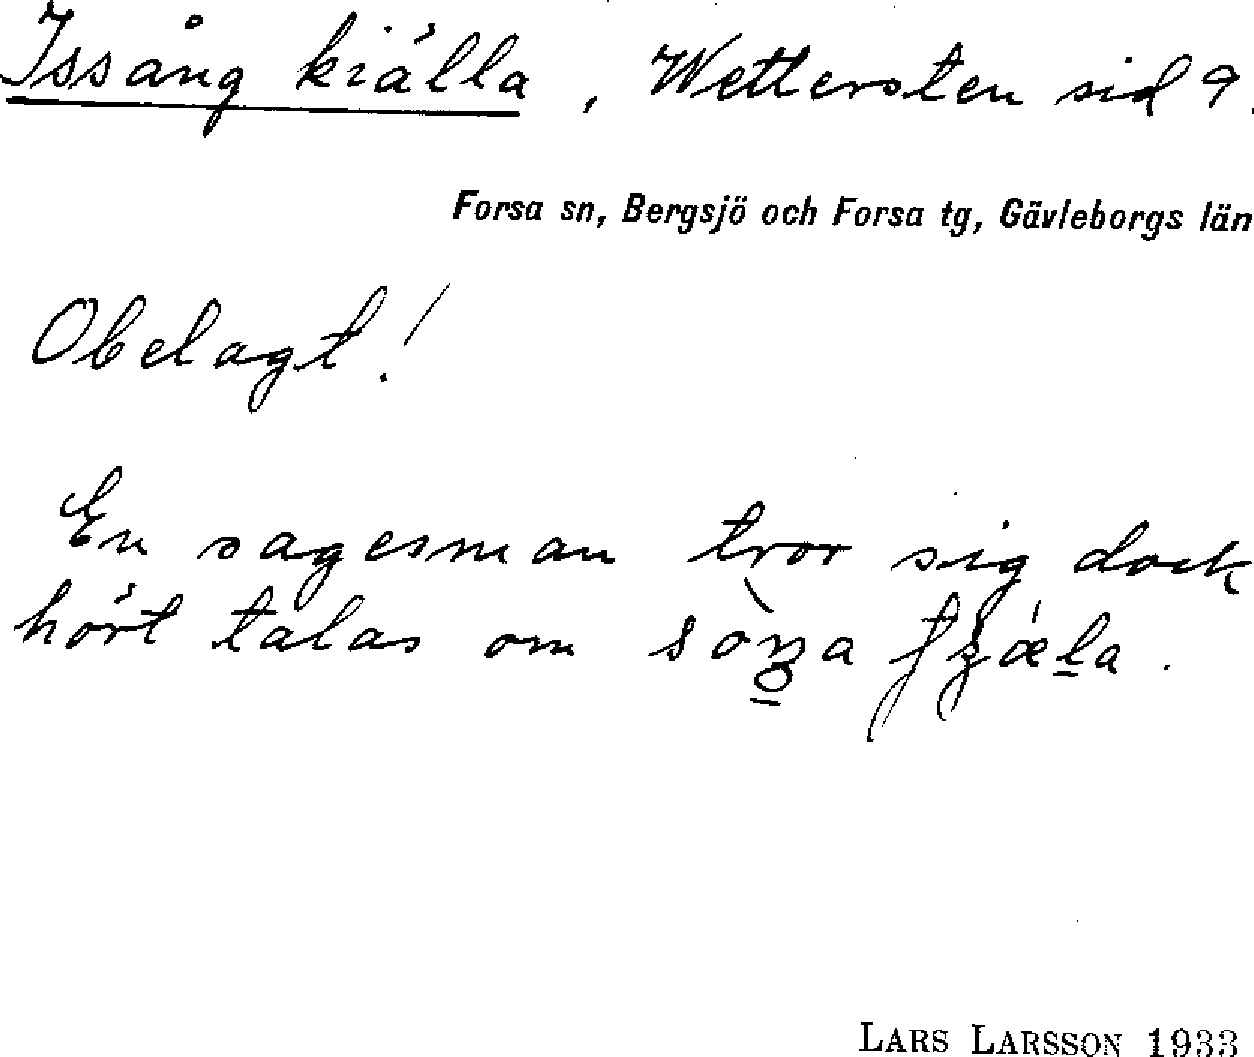 Issång kiälla, Wettersten sid 9.
Forsa sn, Bergsjö och Forsa tg, Gävleborgs län
Obelagt!
En sagesman tror sig dock
hört talas om
LARS LARSSON 1933